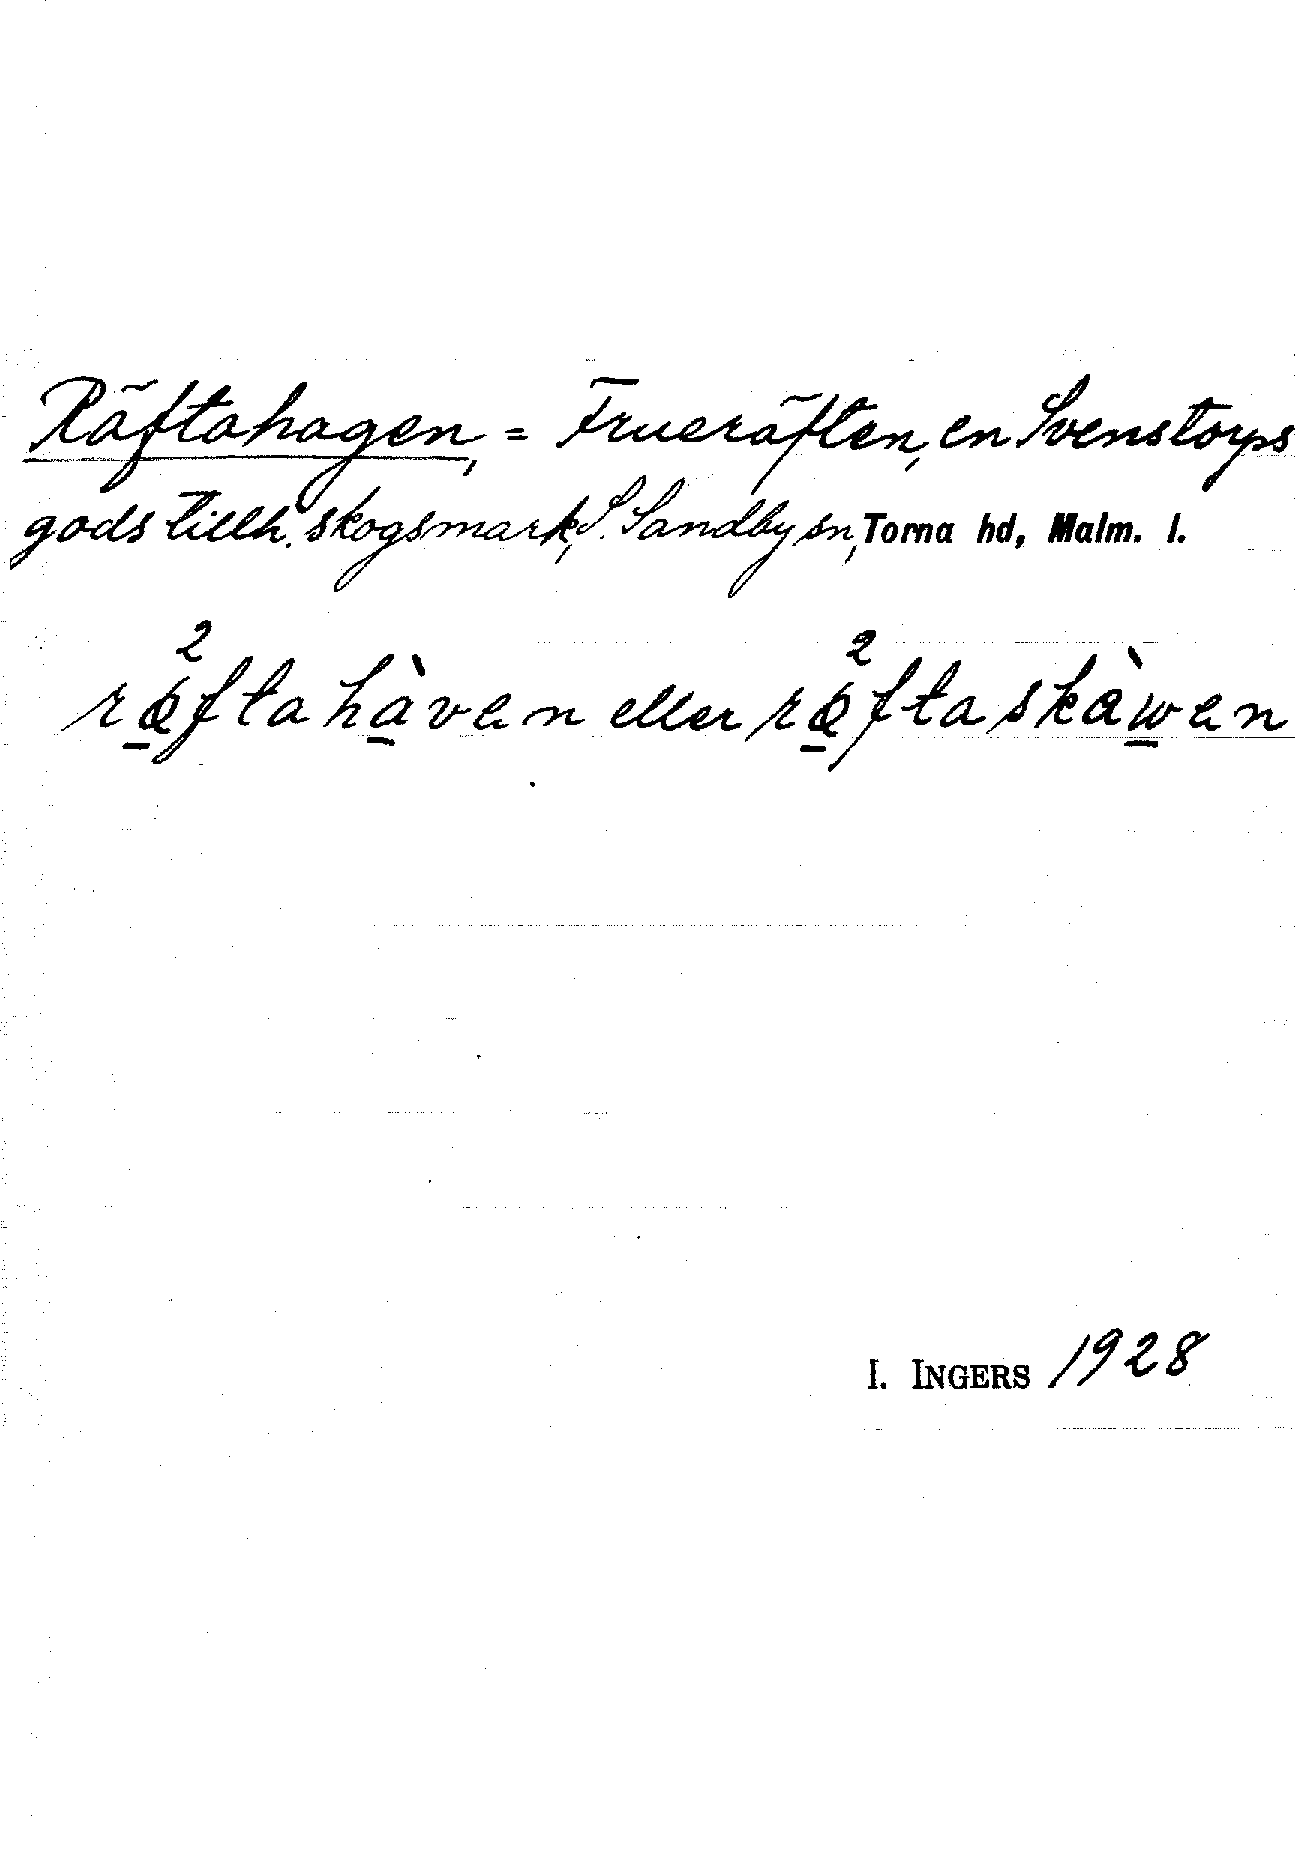 Räftahagen, = Frueräften, en Svenstorps
gods tillh. skogsmark, S. Sandby sn, Torna hd, Malm. l.
ræ²ftahàven eller ræ²ftaskàwen
I. INGERS 1928